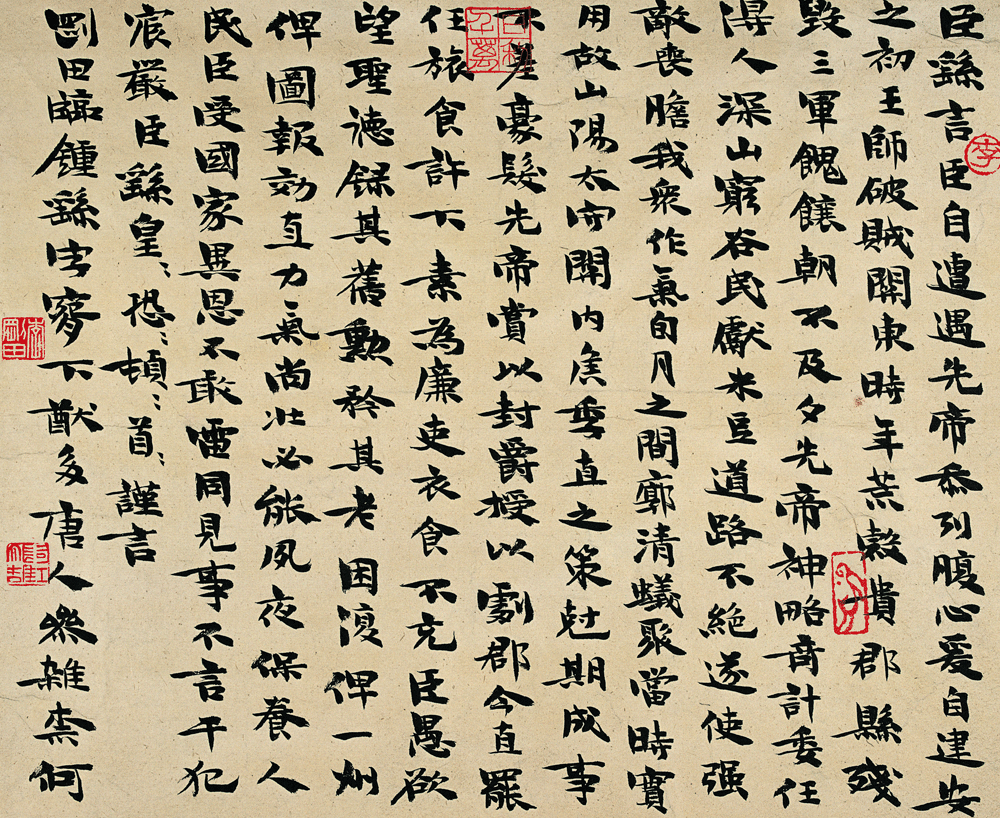 臣繇言臣自遭遇先帝忝列腹心爰自建安
之初王師破賊關東時年荒穀貴郡縣殘
毀三軍餽饟朝不及夕先帝神略奇計委任
得人深山窮谷民獻米豆道路不絕遂使强
敵喪膽我衆作氣旬月之間廓清蟻聚當時實
用故山陽太守關內侯季直之策尅期成事
不差豪髮先帝賞以封爵授以劇郡今直罷
任旅食許下素為廉吏衣食不充臣愚欲
望聖德錄其舊勳矜其老困復俾一州
俾圖報効直力氣尚壯必能夙夜保養人
民臣受國家異恩不敢雷同見事不言干犯
宸嚴臣繇皇〻恐〻頓〻首〻謹言
田臨鍾繇字下猷多唐人叅雜柰何
李